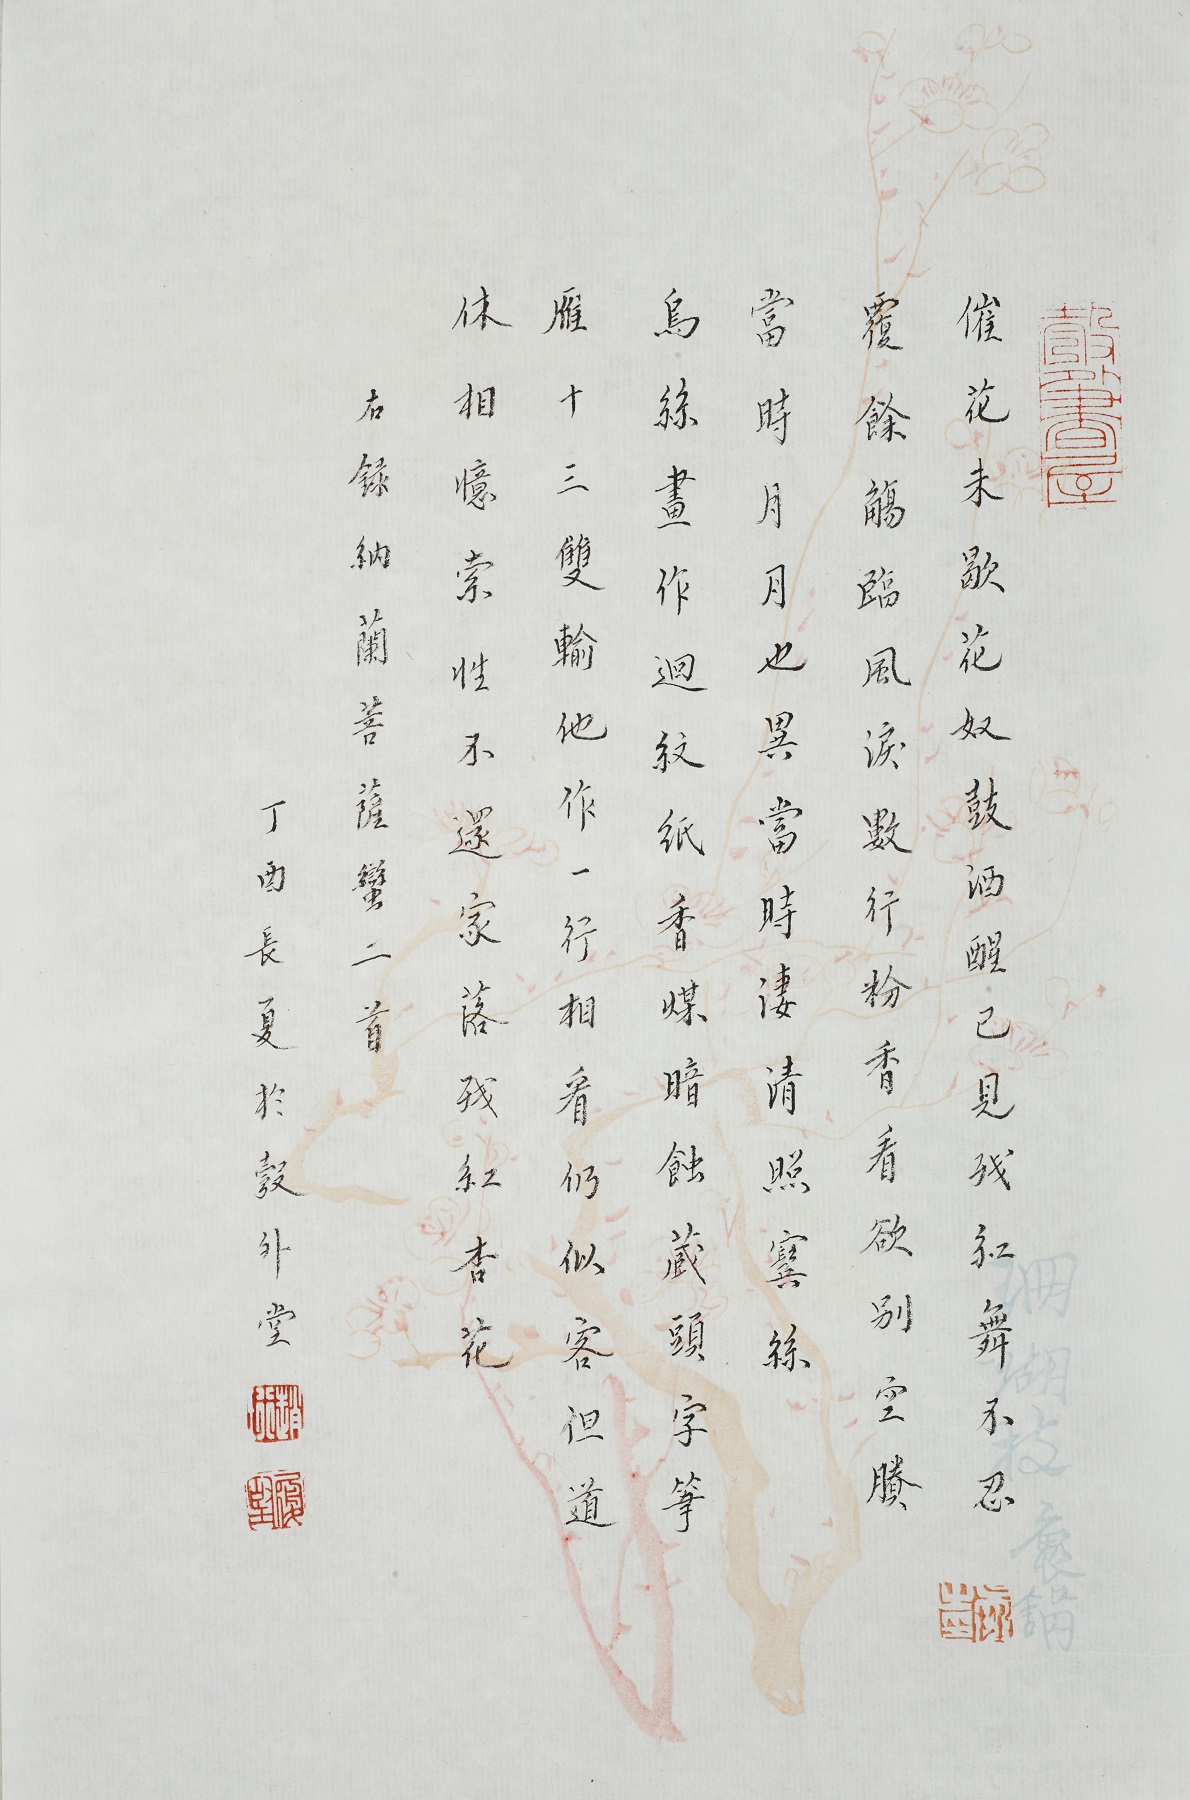 催花未歇花奴鼓酒醒已見残紅舞不忍
覆餘觴臨風淚數行粉香看欲別空賸
當時月月也異當時淒清照鬢絲
烏絲畫作迴紋紙香煤暗蝕蔵頭字箏
雁十三雙輸他作一行相看仍似客但道
休相憶索性不還家落残紅杏花
右録納蘭菩薩蠻二首
丁酉長夏於彀外堂
珊瑚枝